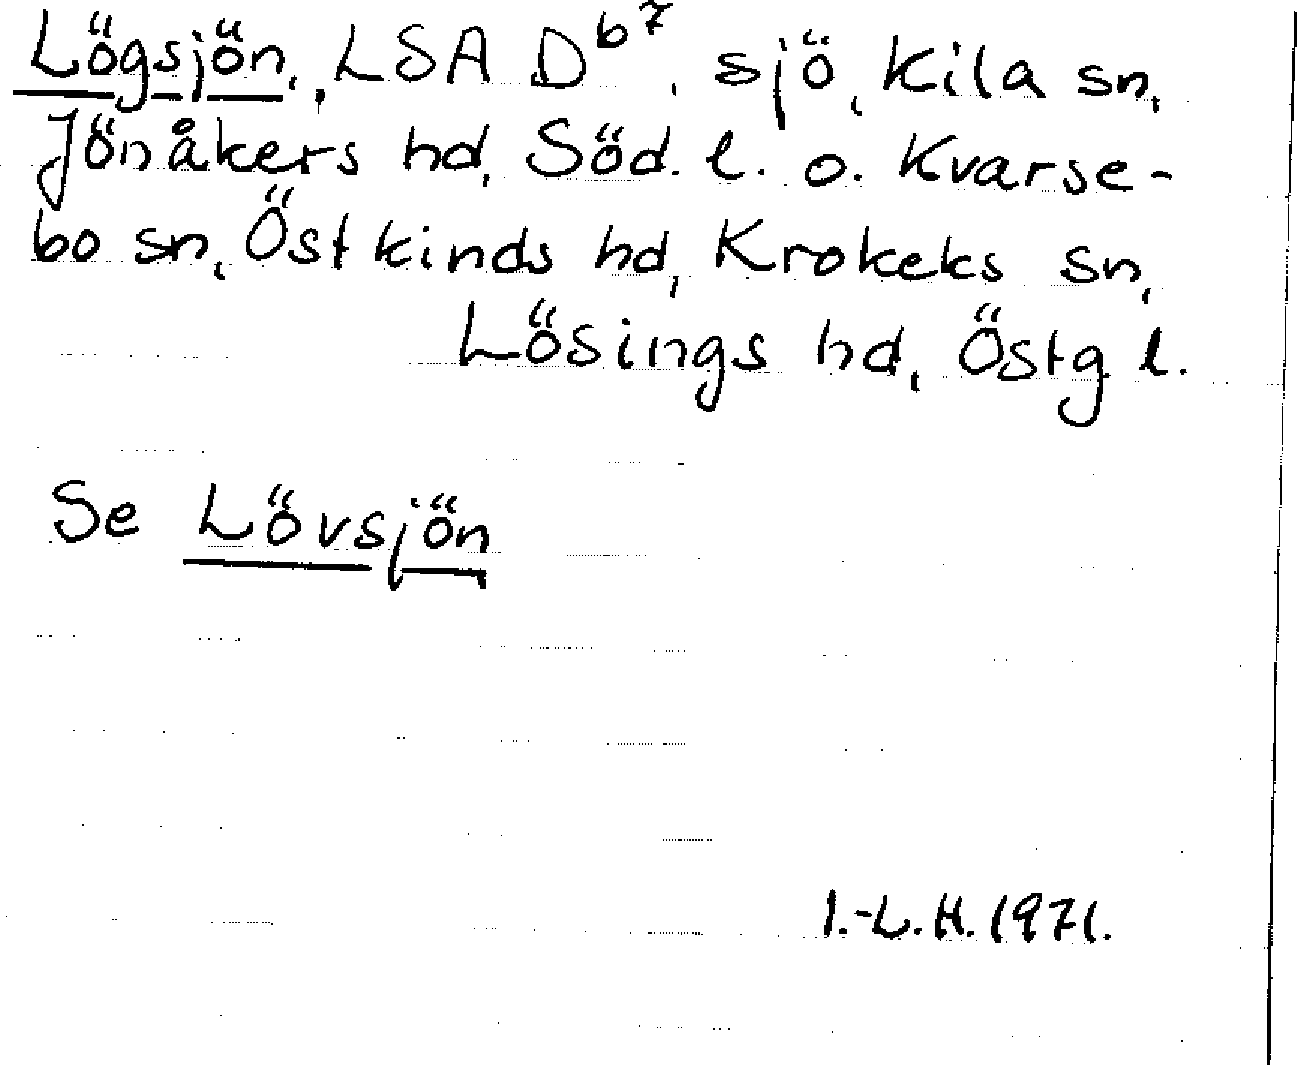 Lögsjön, LSA D⁶⁷, sjö, Kila sn,
Jönåkers hd, Söd. l. o. Kvarse-
bo sn, Östkinds hd, Krokeks sn,
Lösings hd, Östg l.
Se Lövsjön
I.-L.H. 1971.